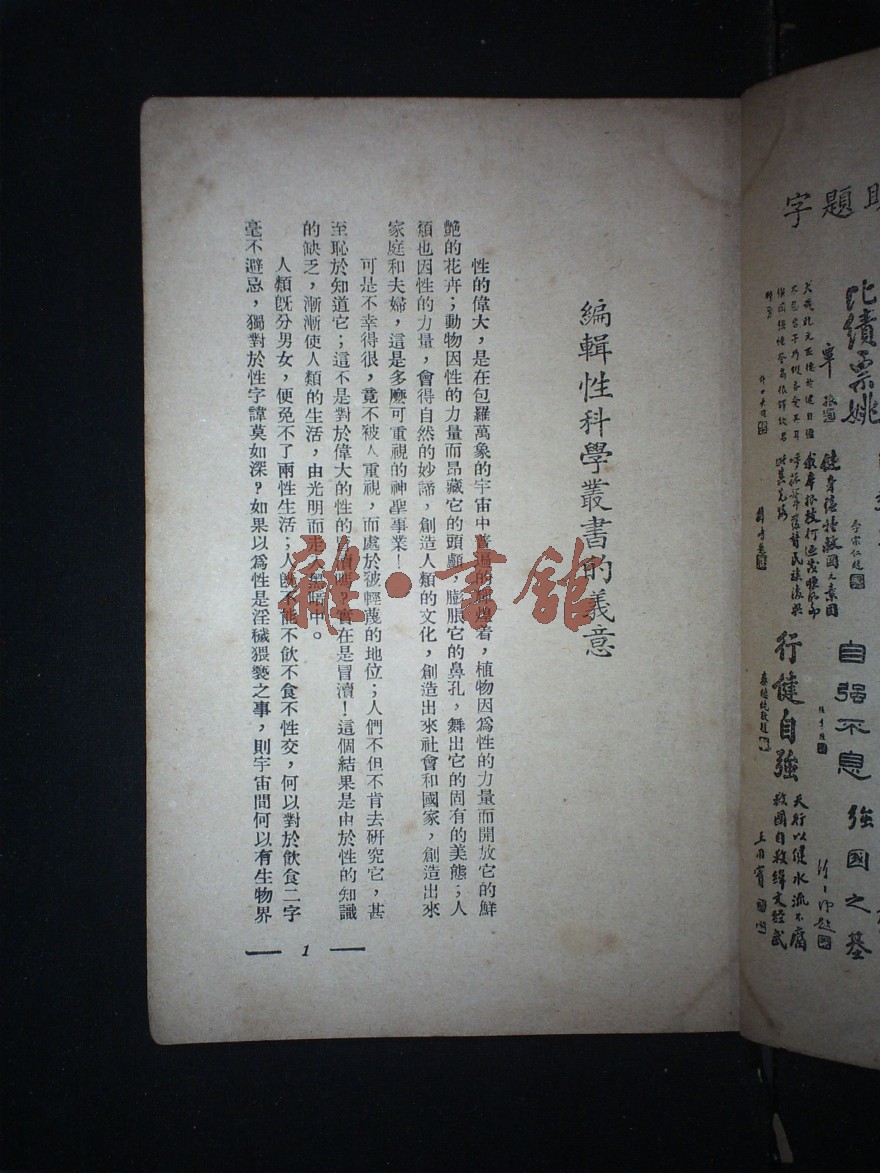 編輯性科學叢書的義意
性的偉大，是在包羅萬象的宇宙中普遍的輝煌着，植物因爲性的力量而開放它的鮮
艷的花卉；動物因性的力量而昂藏它的頭顱，膨脹它的鼻孔，舞出它的固有的美態；人
類也因性的力量，會得自然的妙諦，創造人類的文化，創造出來社會和國家，創造出來
家庭和夫婦，這是多麼可重視的神聖事業！
可是不幸得很，竟不被人重視，而處於被輕蔑的地位；人們不但不肯去研究它，甚
至恥於知道它；這不是對於偉大的性的
實在是冒瀆！這個結果是由於性的知識
的缺乏，漸漸使人類的生活，由光明而走入黑暗中。
人類既分男女，便免不了兩性生活；人既不能不飲不食不性交，何以對於飲食二字
毫不避忌，獨對於性字諱莫如深？如果以爲性是淫穢猥褻之事，則宇宙間何以有生物界
1
雜·書館
題字
李宗仁題
行健自強
自強不息
強國之基
天行以健水流不腐
救國自救緯文經武